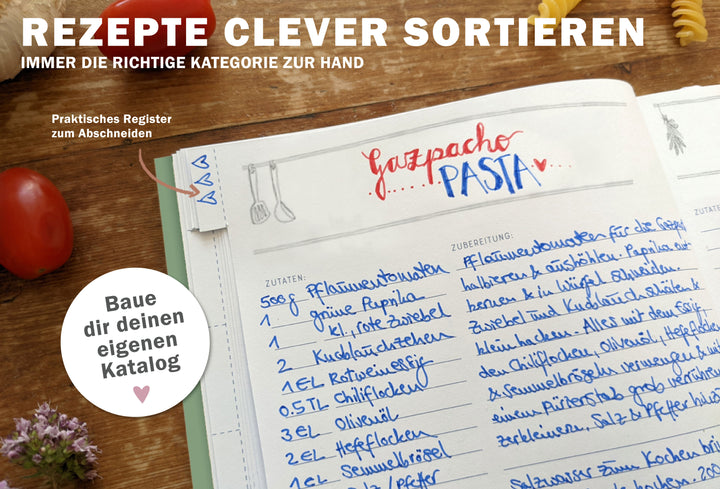 REZEPTE CLEVER SORTIEREN
IMMER DIE RICHTIGE KATEGORIE ZUR HAND
Praktisches Register
zum Abschneiden
Gazpacho
PASTA
Baue
dir deinen
eigenen
Katalog
ZUTATEN:
500g Pflaumentomaten
1 grüne Paprika
1 kl., rote Zwiebel
2 Knoblauchzehen
1EL Rotweinessig
0.5TL Chiliflocken
3EL Olivenöl
2EL Hefeflocken
1EL Semmelbrösel
Salz/Pfeffer
ZUBEREITUNG:
Pflaumentomaten für die
halbieren & aushöhlen. Paprika
kernen & in Würfel schneiden.
Zwiebel und Knoblauch schälen &
klein hacken. Alles mit dem Essig,
den Chiliflocken, Olivenöl, Hefeflocken
& Semmelbröseln vermengen &
einem Pürierstab grob
zerkleinern. Salz & Pfeffer
Salzwasser zum Kochen
ZUTATE